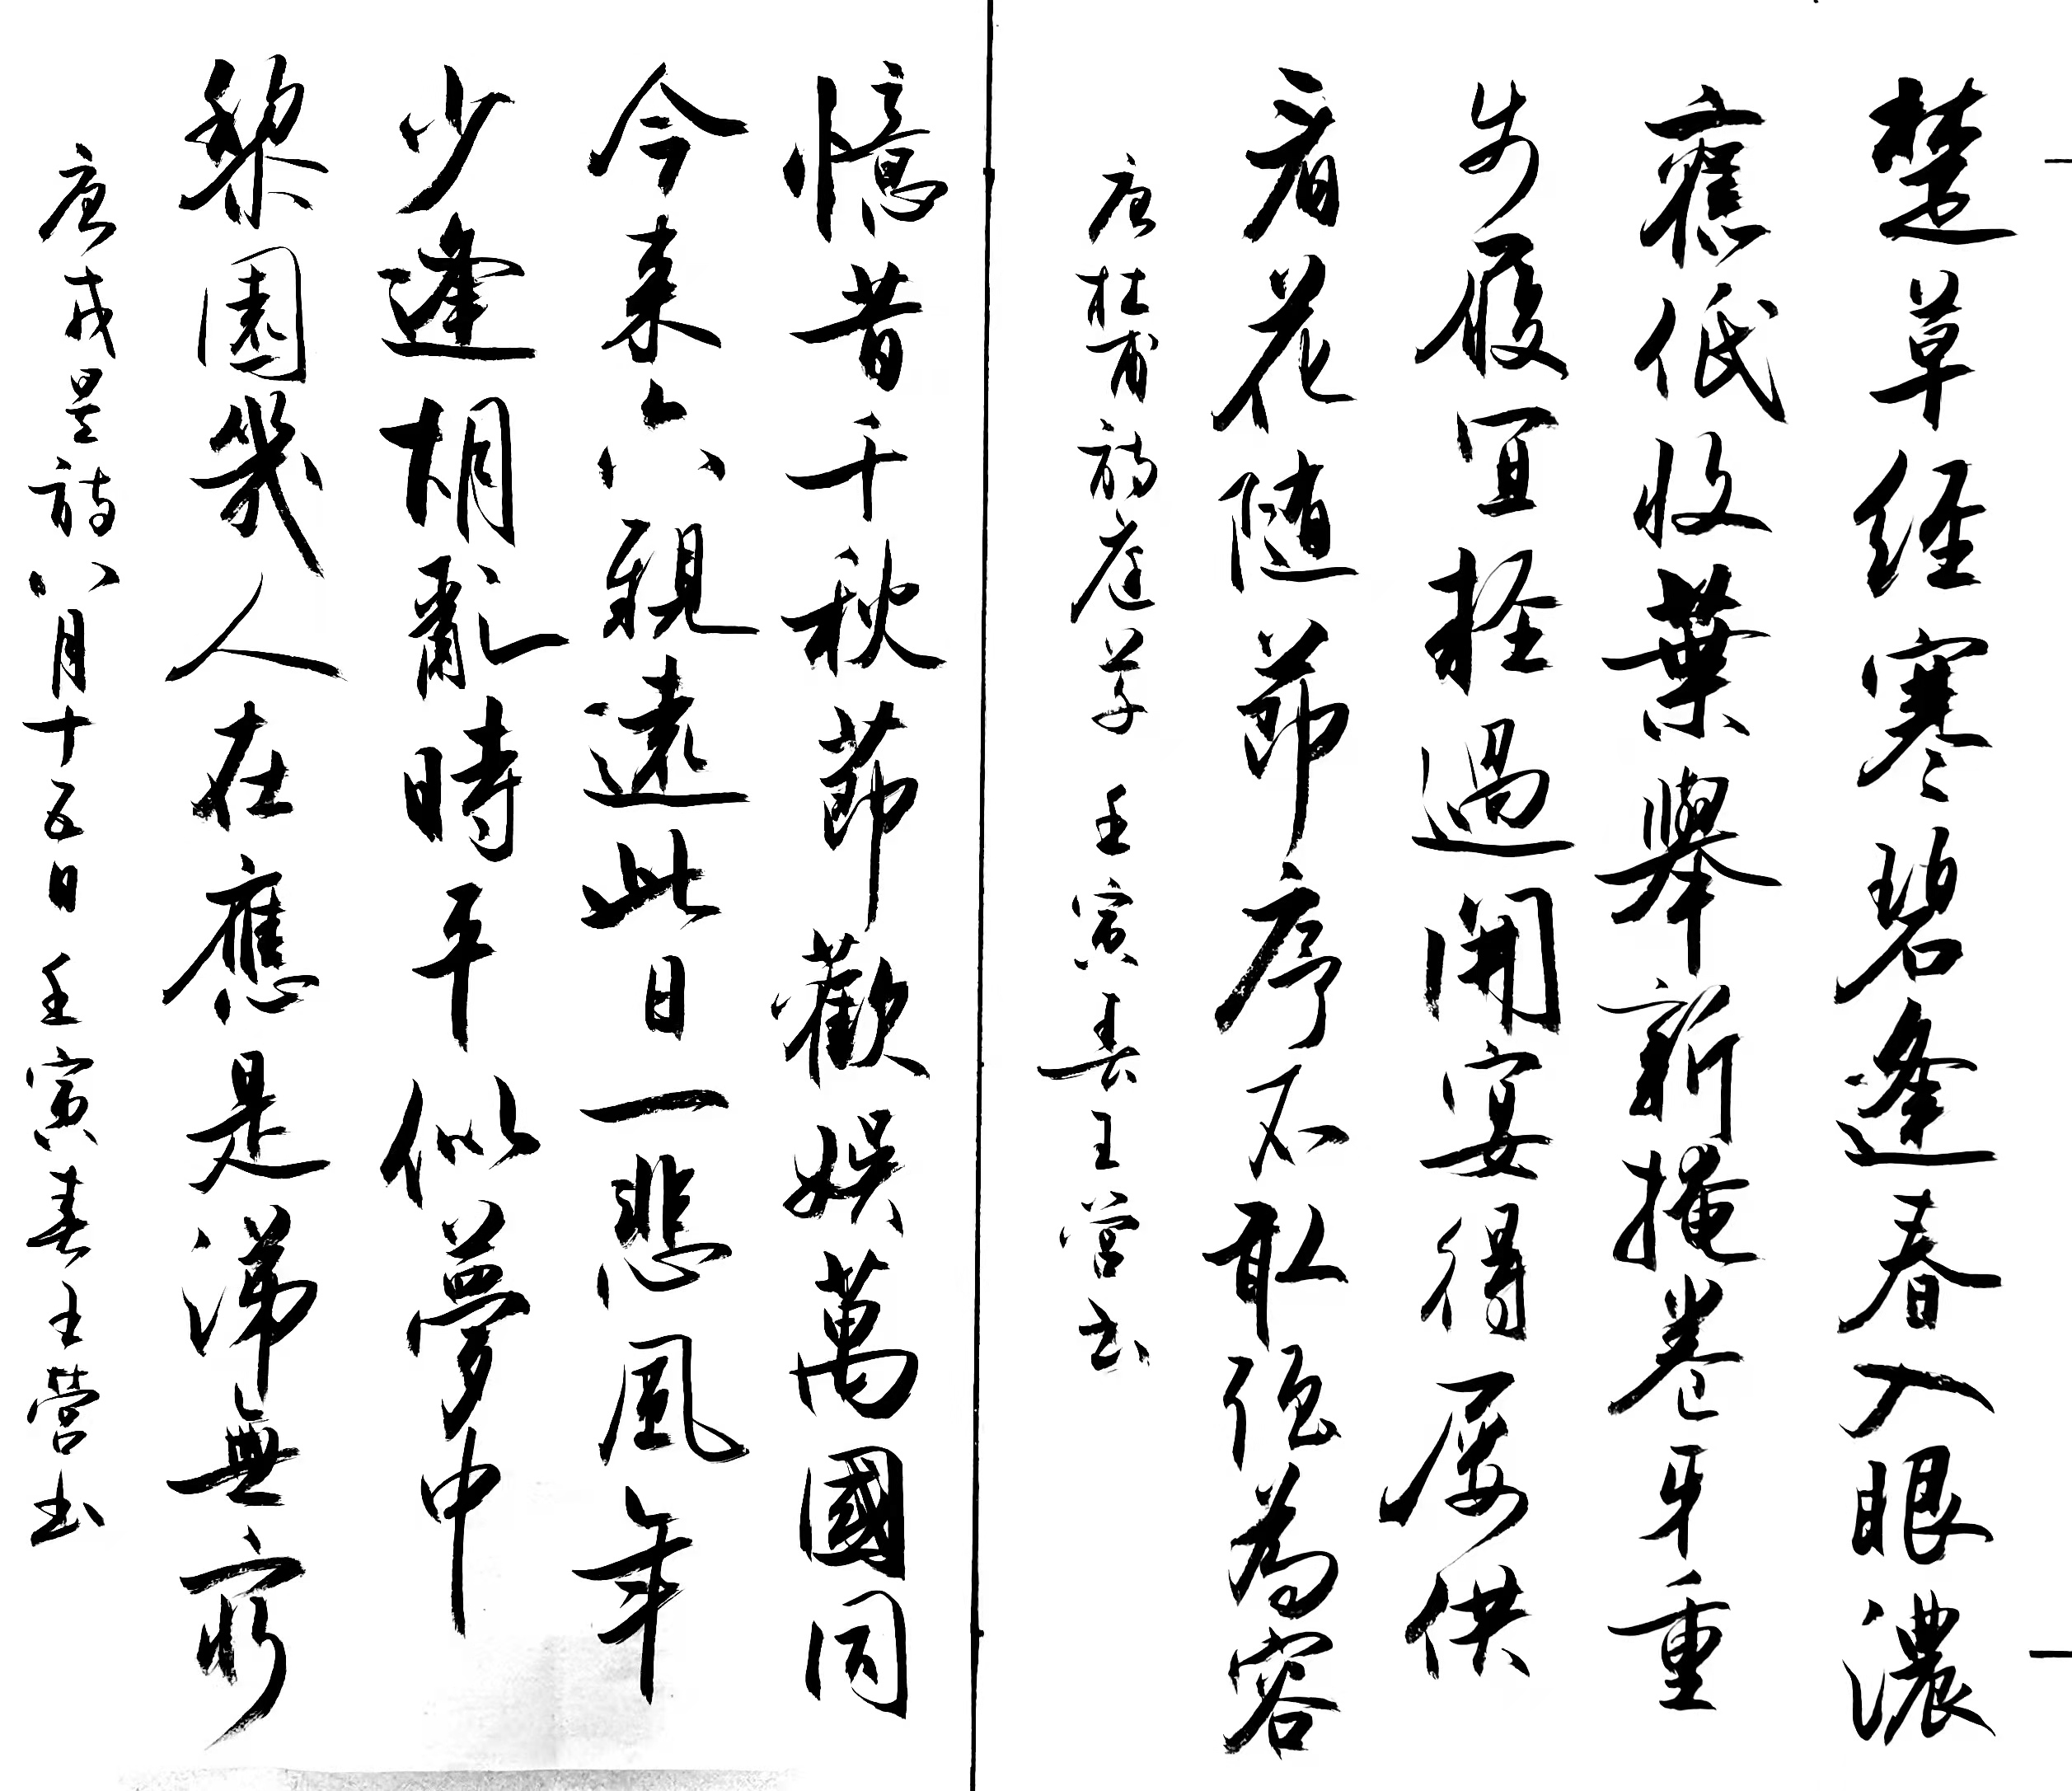 楚草經寒碧逢春入眼濃
舊低收葉舉新掩卷牙重
步履宜輕過開宴得屢供
看花隨節序不敢強為容
唐杜甫詩庭草 壬寅春王营书
憶昔千秋節歡娛萬國同
今来六親遠此日一悲風年
少逢胡亂時平似夢中
梨園幾人在應是涕無窮
唐戎昱詩八月十五日壬寅春王营书